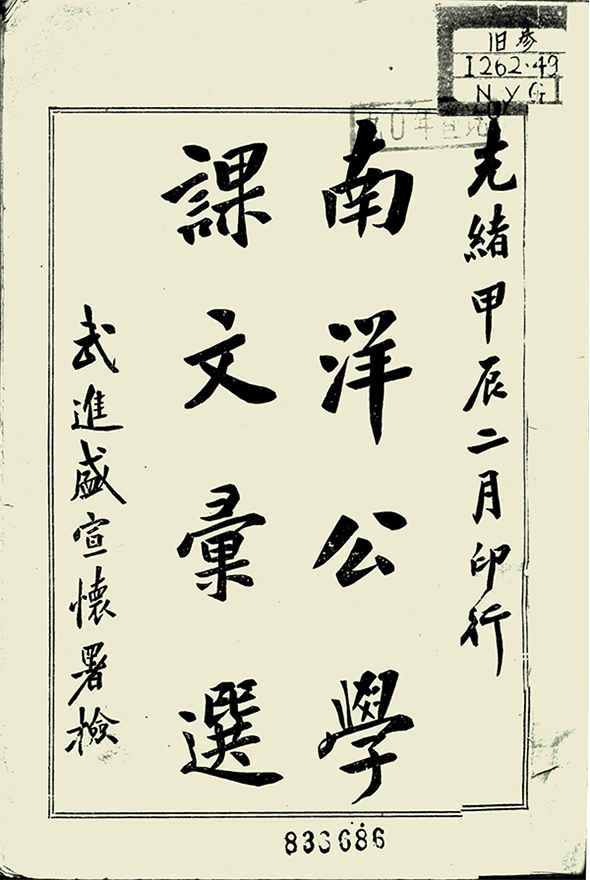 旧参
I262·49
NYG
光緒甲辰二月印行
南洋公學
課文彙選
武進盛宣懷署檢
836686